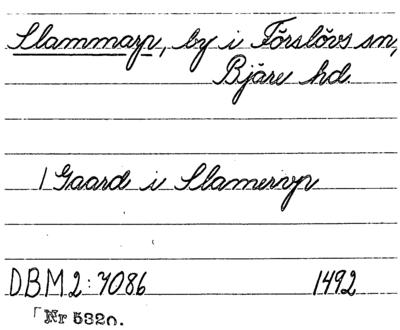 Slammarp, by i Förslövs sn,
Bjäre hd.
1 Gaard i Slameropp
DBM2:7086 1492
Nr 5320.